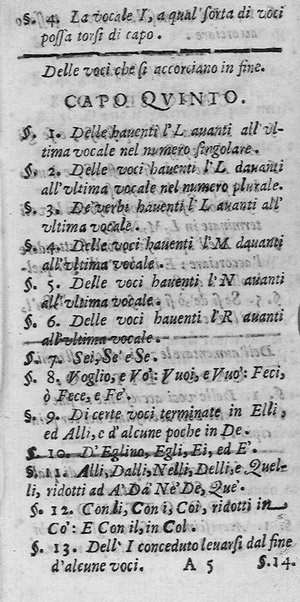 §. 4. La vocale I, a qual' sorta di voci
possa torsi di capo.
Delle voci che si accorciano in fine.
CAPO QVINTO.
§. 1. Delle hauenti l'L auanti all'vl-
tima vocale nel numero singolare.
§. 2. Delle voci hauenti l'L dauanti
all'vltima vocale nel numero plurale.
§. 3. De' verbi hauenti l'L auanti all'
vltima vocale.
§. 4. Delle voci hauenti l'M dauanti
all'vltima vocale.
§. 5. Delle voci hauenti l'N auanti
all'vltima vocale.
§. 6. Delle voci hauenti l'R auanti
all'vltima vocale.
§. 7. Sei, Se' e Se.
§. 8. Voglio, e Vo': Vuoi, e Vuo': Feci,
ò Fece, e Fe'.
§. 9. Di certe voci terminate in Elli,
ed Alli, e d'alcune poche in De.
§. 10. D'Eglino, Egli, Ei, ed E'.
§. 11. Alli, Dalli, Nelli, Delli, e Quel-
li, ridotti ad A' Da' Ne' De', Que'.
§. 12. Con li, Con i, Coi, ridotti in
Co': E Con il, in Col.
§. 13. Dell' I conceduto leuarsi dal fine
d'alcune voci. A 5 §.14.